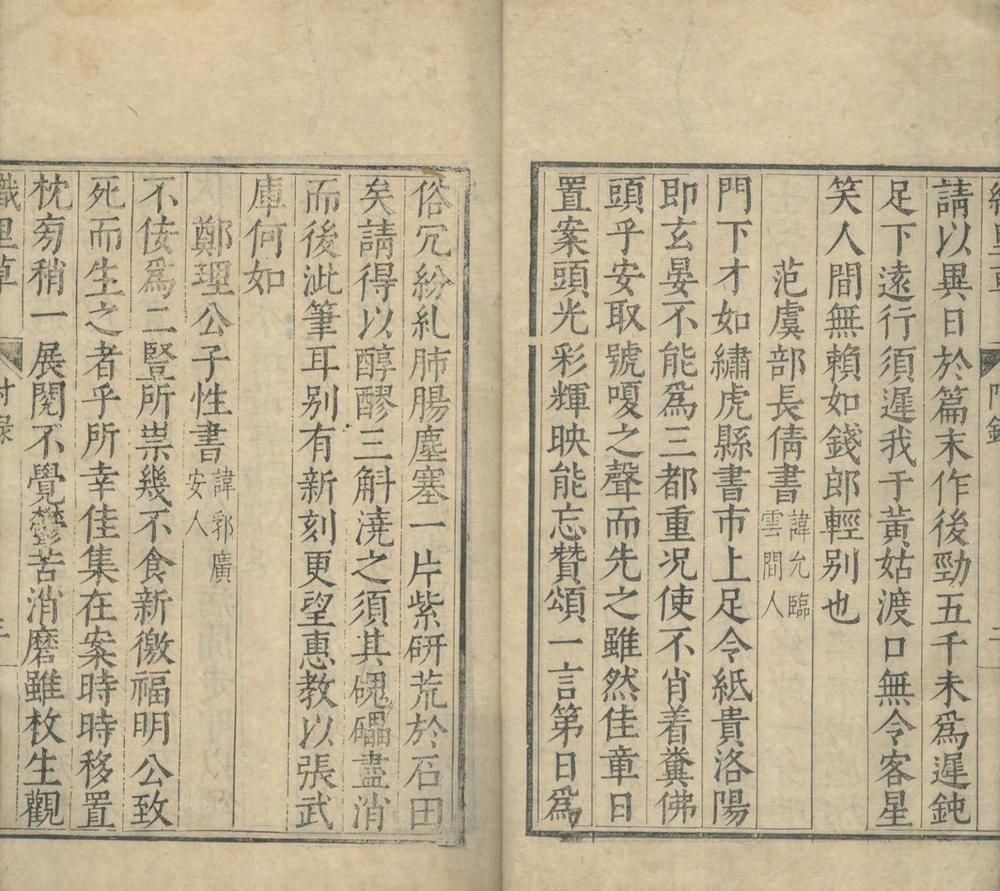 請以異日於篇末作後勁五千未爲遲鈍
足下遠行須遲我于黃姑渡口無令客星
笑人間無賴如錢郎輕别也
范虞部長倩書
諱允臨
雲間人
門下才如繡虎縣書市上足令紙貴洛陽
即玄晏不能爲三都重况使不肖着糞佛
頭乎安取號嗄之聲而先之雖然佳章日
置案頭光彩輝映能忘贊頌一言第日爲
俗冗紛糺肺腸塵塞一片紫硏荒於石田
矣請得以醇醪三斛澆之須其磈礧盡消
而後泚筆耳别有新刻更望惠教以張武
庫何如
鄭理公子性書
諱郭廣
安人
不佞爲二豎所祟幾不食新徼福明公致
死而生之者乎所幸佳集在案時時移置
枕旁稍一展閱不覺鬱苦消磨雖枚生觀
織里草
附錄